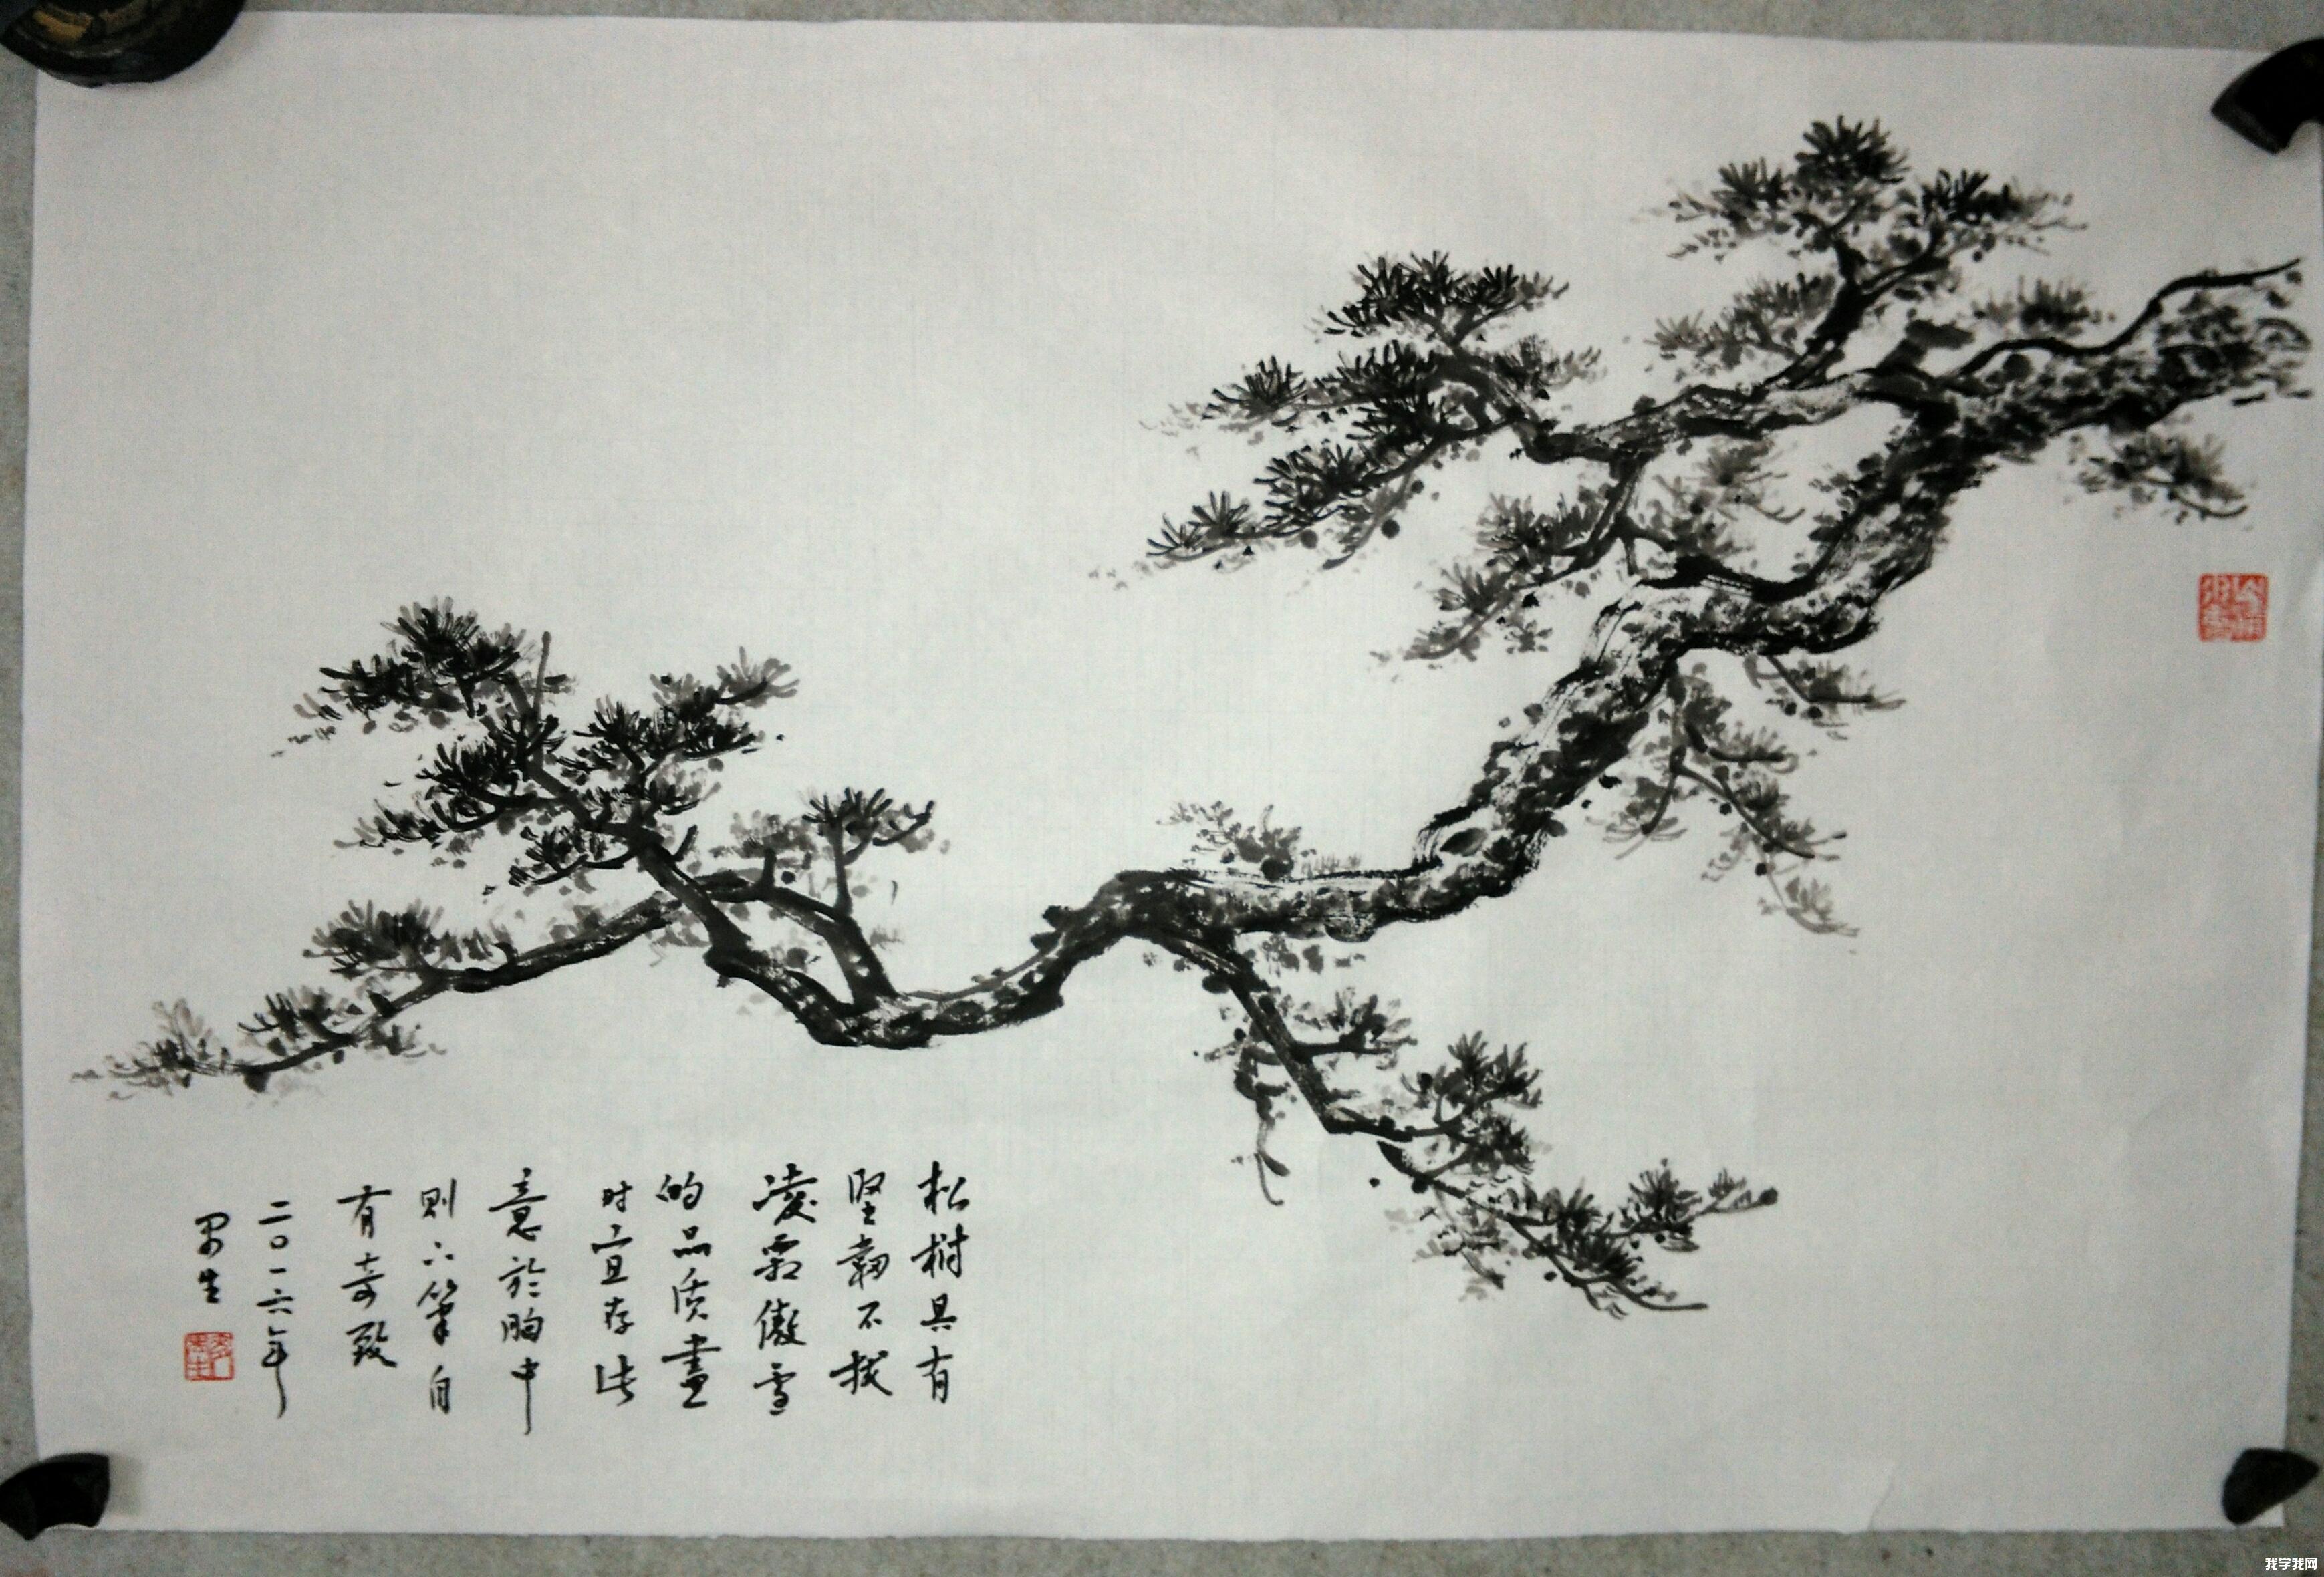 松樹具有
坚韌不拔
凌霜傲雪
的品质畫
时宜存此
意於胸中
则下筆自
有奇致
二〇一六年
我学我网